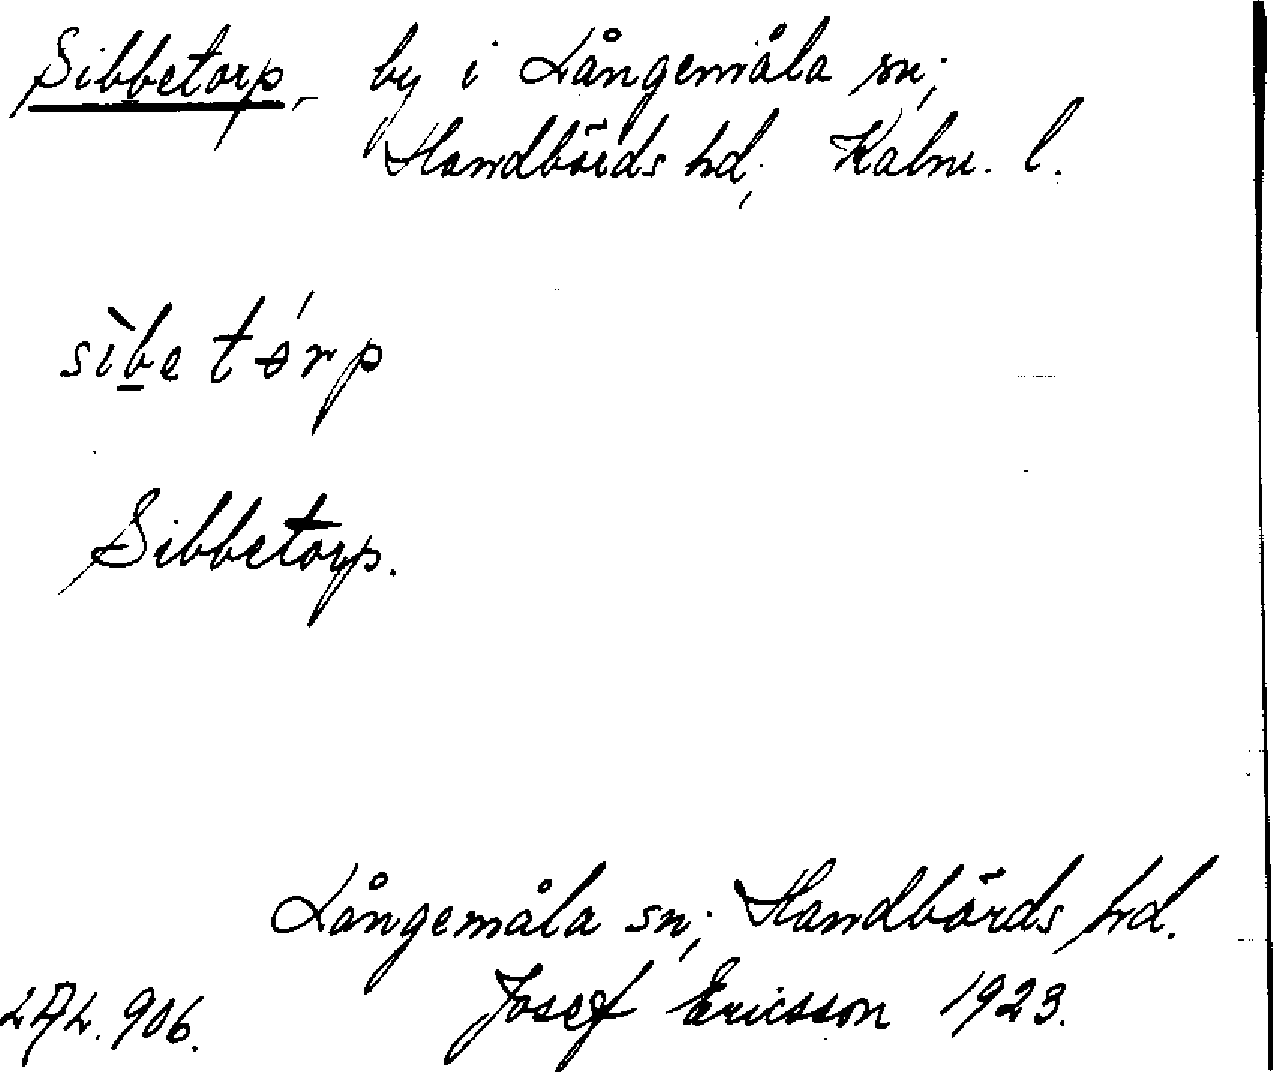 Sibbetorp, by i Långemåla sn;
Handbörds hd; Kalm. l.
sìbe tórp
Sibbetorp.
Långemåla sn; Handbörds hd.
LAL. 906. Josef Ericsson 1923.